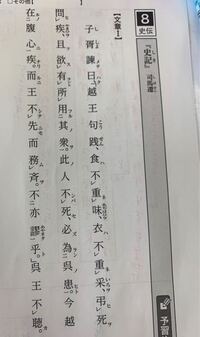 □その他】
8 史伝
『史記』 司馬遷
予習
【文章Ⅰ】
子胥諫曰、「越王句践、食不重味、衣不重采、弔死
問疾、且欲有所用其衆。此人不死、必為呉患。今越
在腹心疾。而王不先而務斉。不亦謬乎。」呉王不聴。